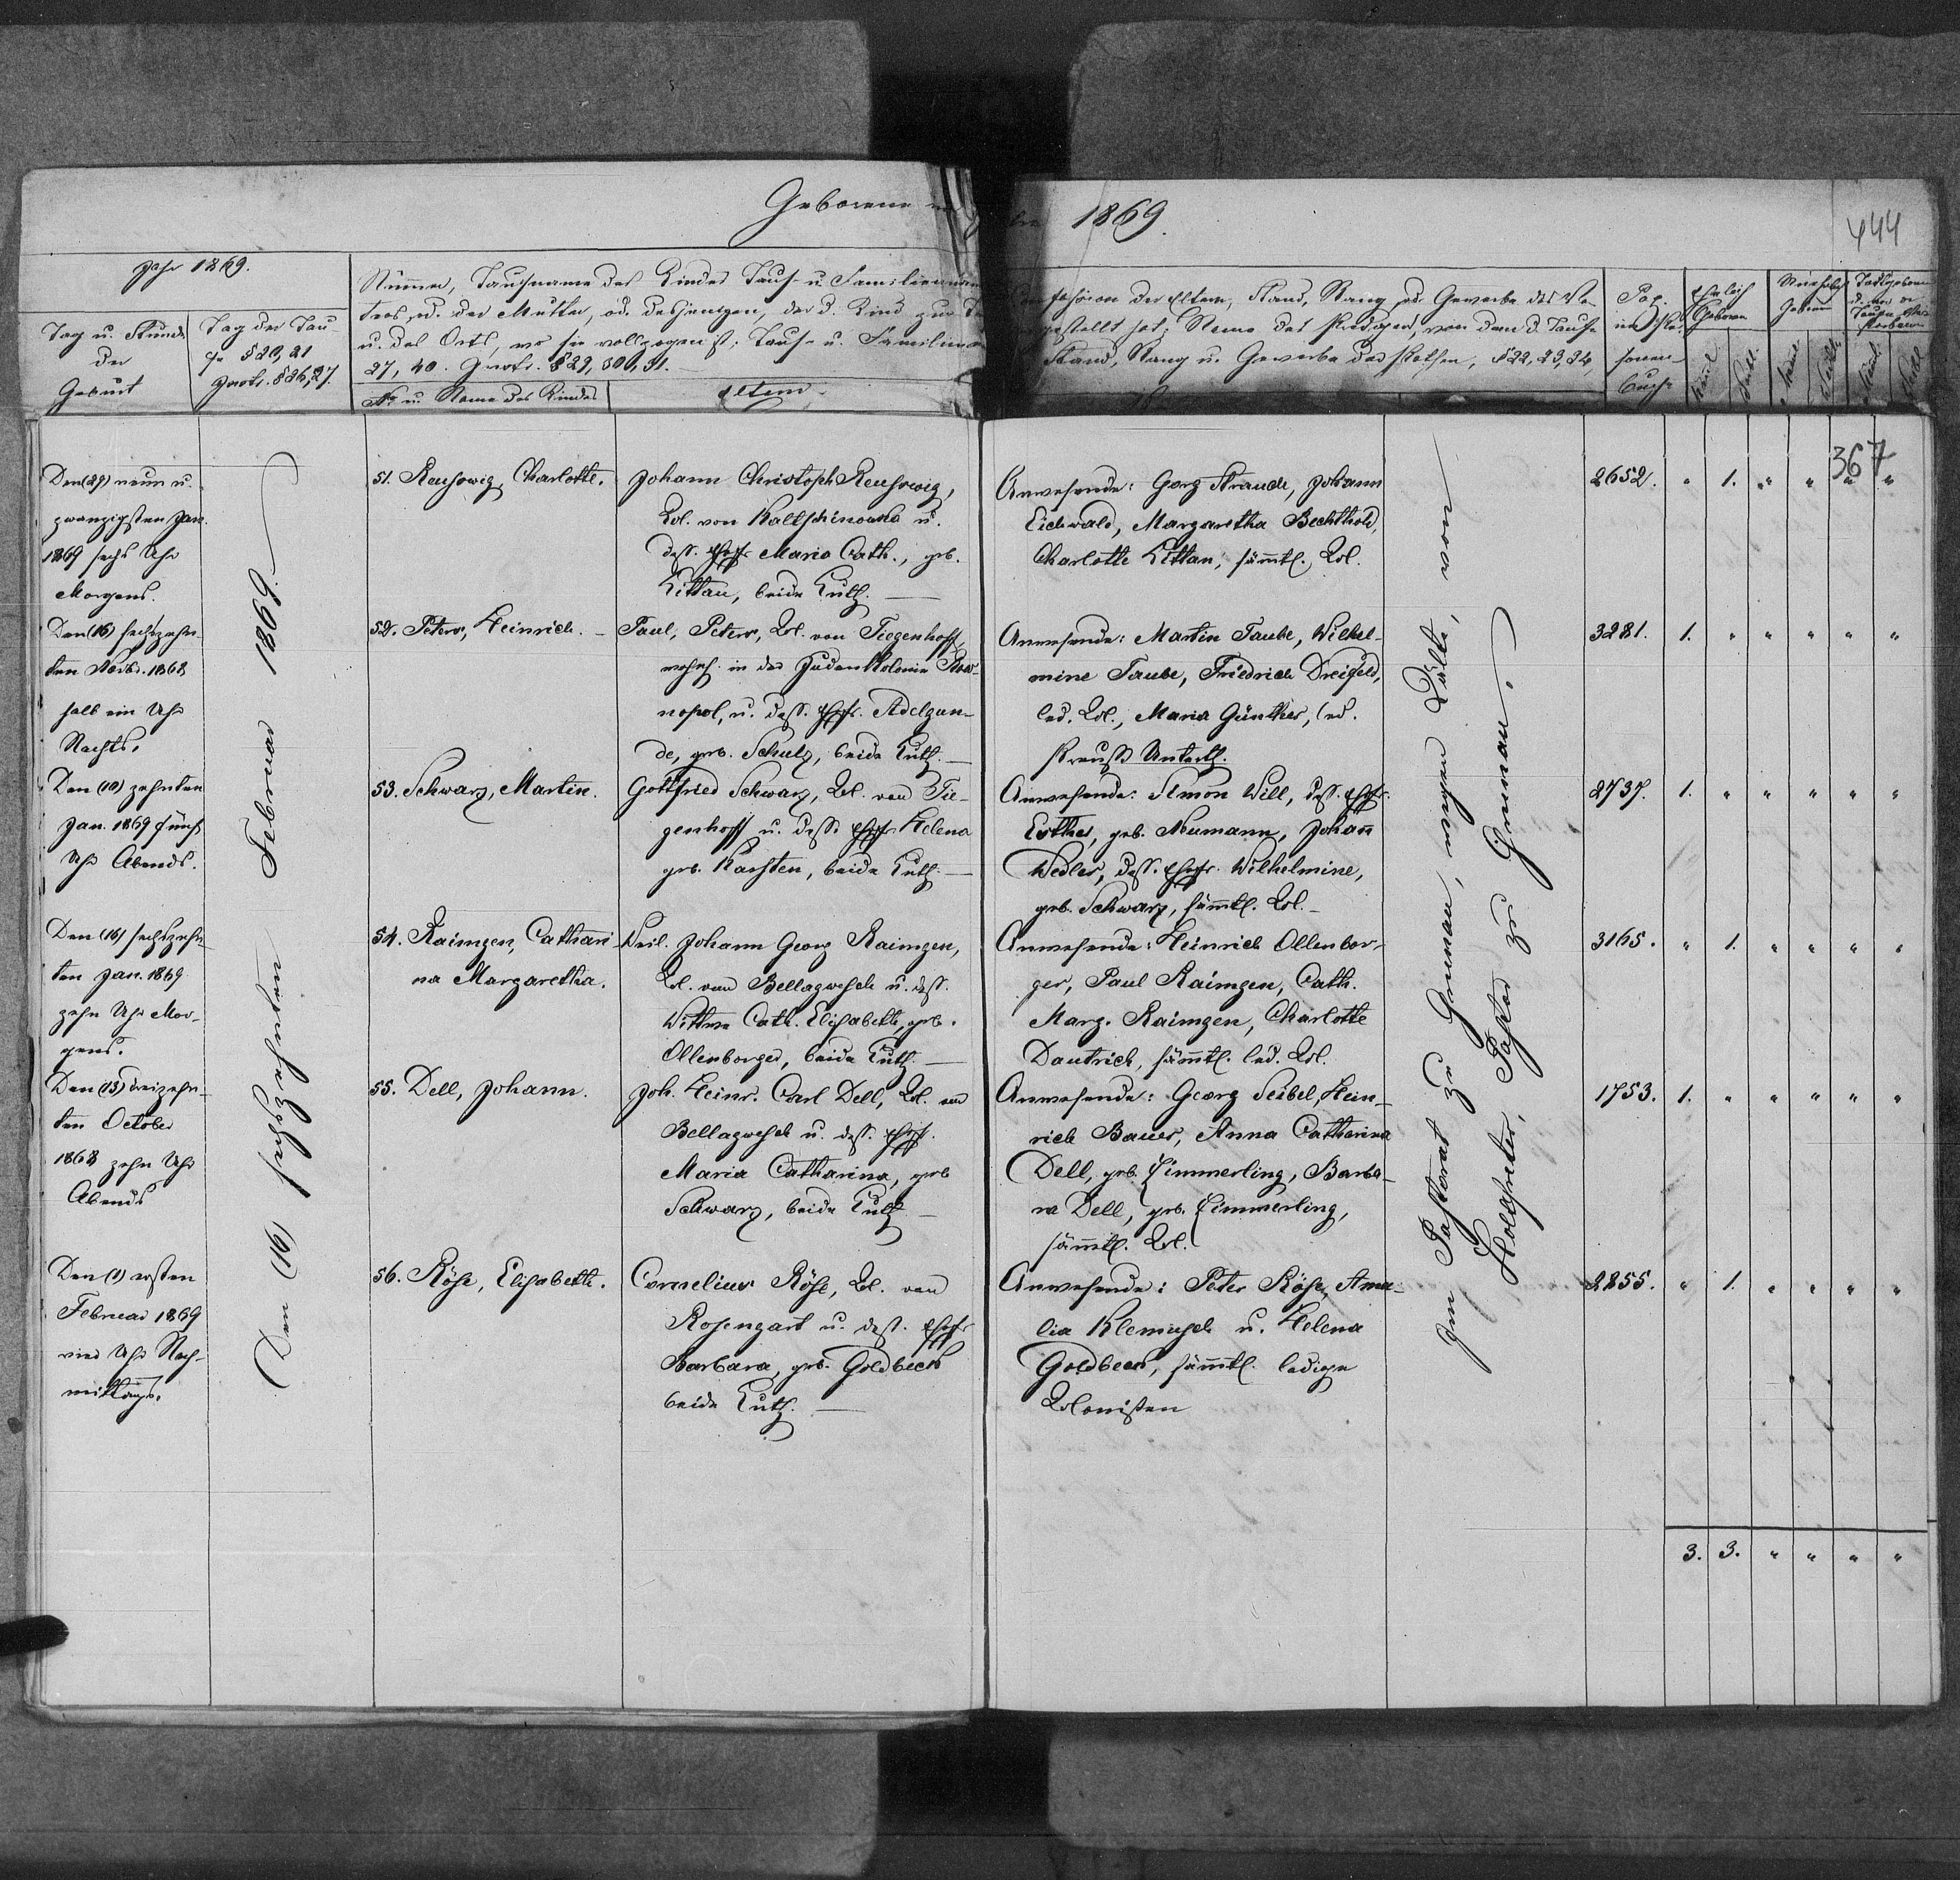 Geborene
1869.
444
Jahr 1869.
Tag u. Stunde
der
Geburt
Tag der Tau-
fe § 20, 21
Protok. § 26, 27.
Nummer, Taufname des Kindes Tauf- u. Familienname
ters u. der Mutter, od. desjenigen, der d. Kind zur
u. des Orts, wo sie vollzogen ist; Tauf- u. Familienna
27, 40.
No u. Name des Kindes
Eltern.
fession der Eltern, Stand, Rang od. Gewerbe des Va-
gestellt hat; Name des Predigers, von dem d. Taufe
Stand, Rang u. Gewerbe derselben, § 22, 23, 24,
Pag.
im
sonen-
buche
Ehelich
Geboren
Unehelich
Geboren
Männl.
Weibl.
Männl.
Weibl.
Männl.
Weibl.
367
Den (29) neun u.
zwanzigsten Jan.
1869 sechs Uhr
Morgens.
51. Reuswig, Charlotte.
Johann Christoph Reuswig,
Col. von Kaltschinowka u.
dess. Ehefr. Maria Cath., geb.
Kittau, beide Luth.
Anwesende: Georg Strauch, Johann
Eichwald, Margaretha Bechthold,
Charlotte Kittau, sämmtl. Col.
2652. " 1. " " " "
Den (16) sechszehn-
ten Novbr. 1868
halb ein Uhr
Nachts.
52. Peters, Heinrich.
Paul, Peters, Col. von Tiegenhoff,
wohnh. in der Judenkolonie Now-
nopol, u. dess. Ehefr. Adelgun-
de, geb. Schulz, beide Luth.
Anwesende: Martin Taube, Wilhel-
mine Taube, Friedrich Dreifeld,
led. Col., Maria Günther, led.
Preuss. Unterth.
3281. 1. " " " " "
Den (10) zehnten
Jan. 1869 fünf
Uhr Abends.
53. Schwarz, Martin.
Gottfried Schwarz, Col. von Tie-
genhoff u. dess. Ehefr. Helena
geb. Karsten, beide Luth.
Anwesende: Simon Will, dess. Ehefr.
Esther, geb. Neumann, Johan
Wedler, dess. Ehefr. Wilhelmine,
geb. Schwarz, sämmtl. Col.
2737. 1. " " " " "
Den (16) sechszehn-
ten Jan. 1869
zehn Uhr Mor-
gens.
54. Raimgen, Cathari-
na Margaretha.
Weil. Johann Georg Raimgen,
Col. von Bellagwesch u. dess.
Wittwe Cath. Elisabeth, geb.
Ollenborger, beide Luth.
Anwesende: Heinrich Ollenbor-
ger, Paul Raimgen, Cath.
Marg. Raimgen, Charlotte
Dautrich, sämmtl. led. Col.
3165. " 1. " " " "
Den (13) dreizehn-
ten October
1868 zehn Uhr
Abends
55. Dell, Johann.
Joh. Heinr. Carl Dell, Col. von
Bellagwesch u. dess. Ehefr.
Maria Catharina, geb
Schwarz, beide Luth
Anwesende: Georg Seibel, Hein-
rich Bauer, Anna Catharina
Dell, geb. Zimmerling, Barba-
ra Dell, geb. Zimmerling,
sämmtl. Col.
1753. 1. " " " " "
Den (1) ersten
Februar 1869
vier Uhr Nach-
mittags.
56. Röse, Elisabeth.
Cornelius Röse, Col. von
Rosengart u. dess. Ehefr
Barbara, geb. Goldbeck
beide Luth.
Anwesende: Peter Röse, Ama-
lia Klemusch u. Helena
Goldbeck, sämmtl. ledige
Colonisten
2855. " 1. " " " "
Den (16) sechszehnten Februar 1869.
Im Pastorat zu Grunau, wegen Kälte, von
Holtfreter, Pastor zu Grunau.
3. 3. " " " "